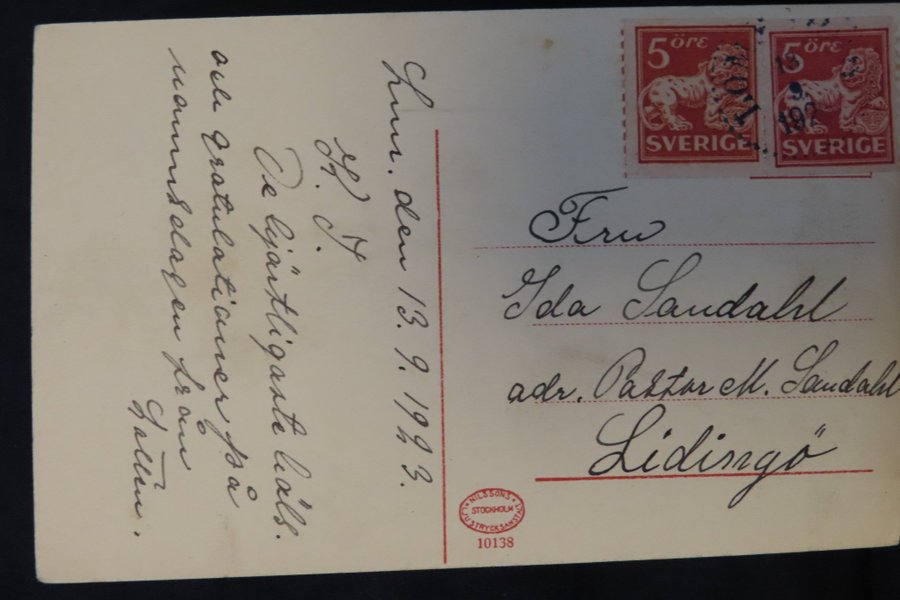 den 13. 9. 1923.
K. I.
De hjärtligaste häls.
och gratulationer på
namnsdagen från
5 ÖRE
SVERIGE
5 ÖRE
SVERIGE
Fru
Ida Sandahl
adr. Pastor M. Sandahl
Lidingö
NILSSONS LJUSTRYCKSANSTALT
STOCKHOLM
10138